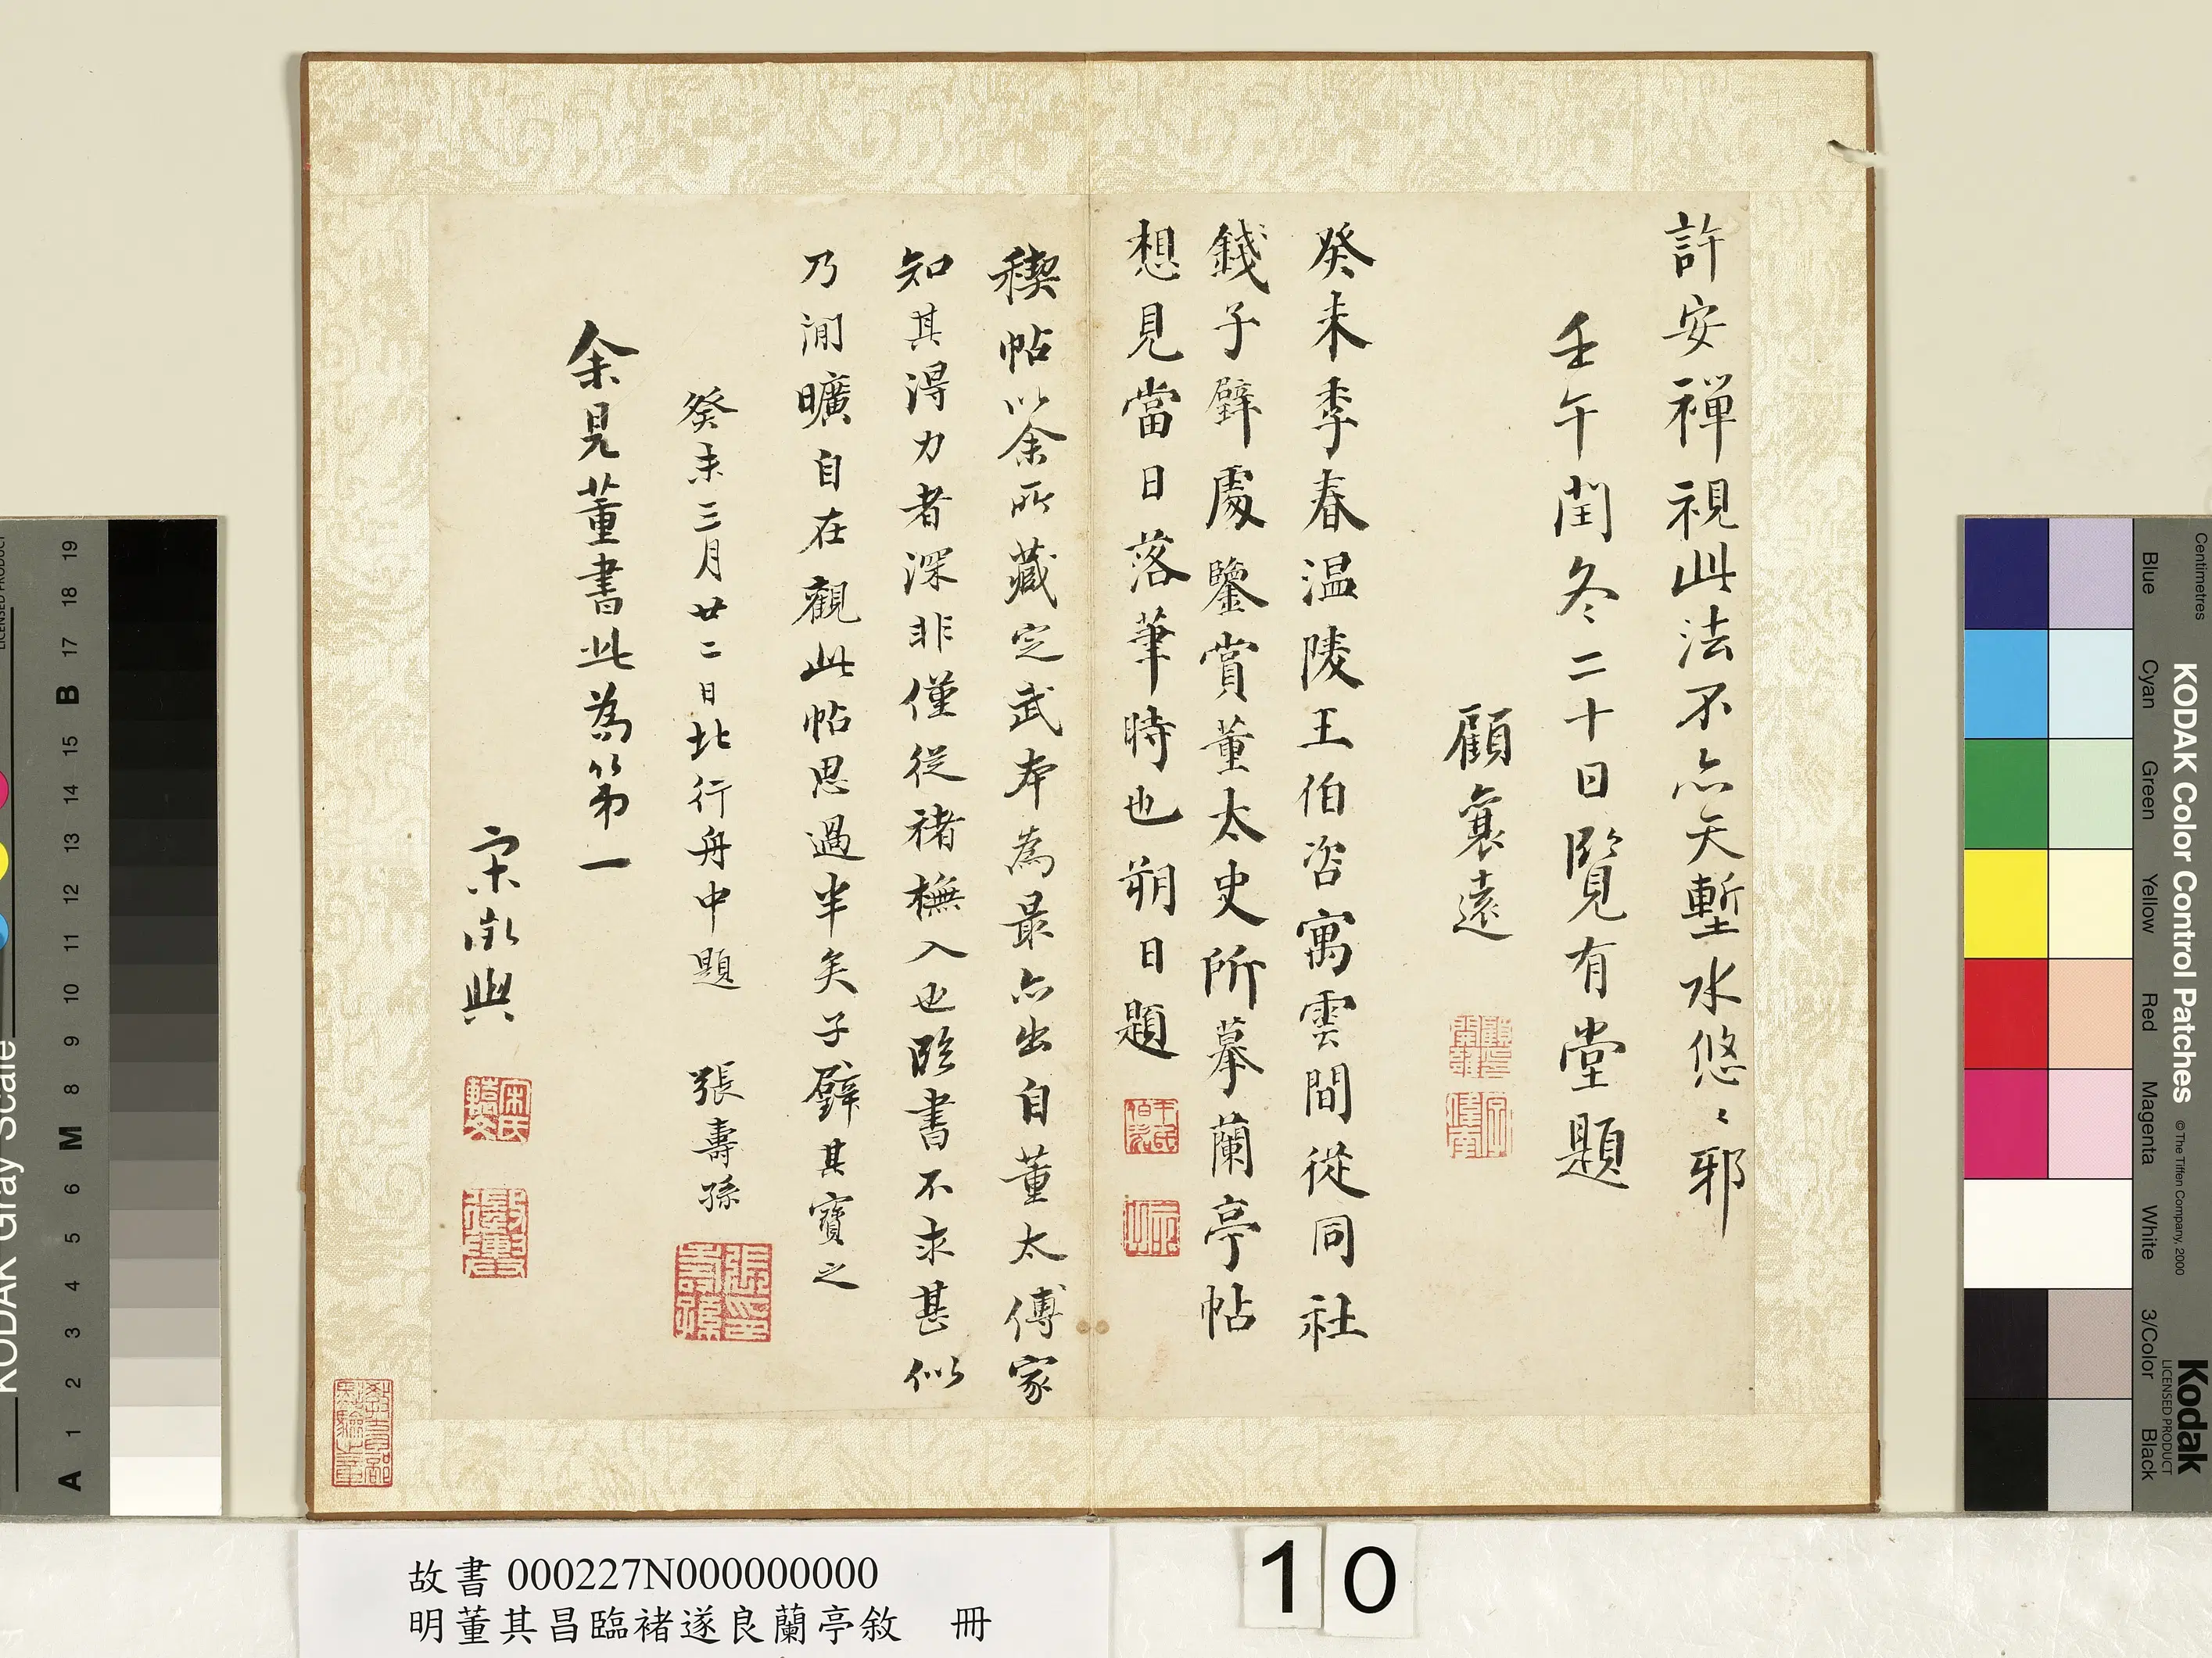 許安禪視此法不亦天塹水悠〻邪
壬午閏冬二十日覽有堂題
顧袞遠
癸未季春温陵王伯咨寓雲間從同社
錢子璧處鑒賞董太史所摹蘭亭帖
想見當日落筆時也朔日題
禊帖以余所藏定武本為最亦出自董太傅家
知其得力者深非僅從褚橅入也臨書不求甚似
乃淵曠自在觀此帖思過半矣子璧其寶之
癸未三月廿二日北行舟中題 張壽孫
余見董書此為第一
宋徵輿
張壽孫印
故書 000227N000000000
明董其昌臨褚遂良蘭亭敘 冊
10
KODAK Color Control Patches
© The Tiffen Company, 2000
Kodak
LICENSED PRODUCT
Centimetres
Blue
Cyan
Green
Yellow
Red
Magenta
White
3/Color
Black
KODAK Gray Scale
A 1 2 3 4 5 6 M 8 9 10 11 12 13 14 15 B 17 18 19